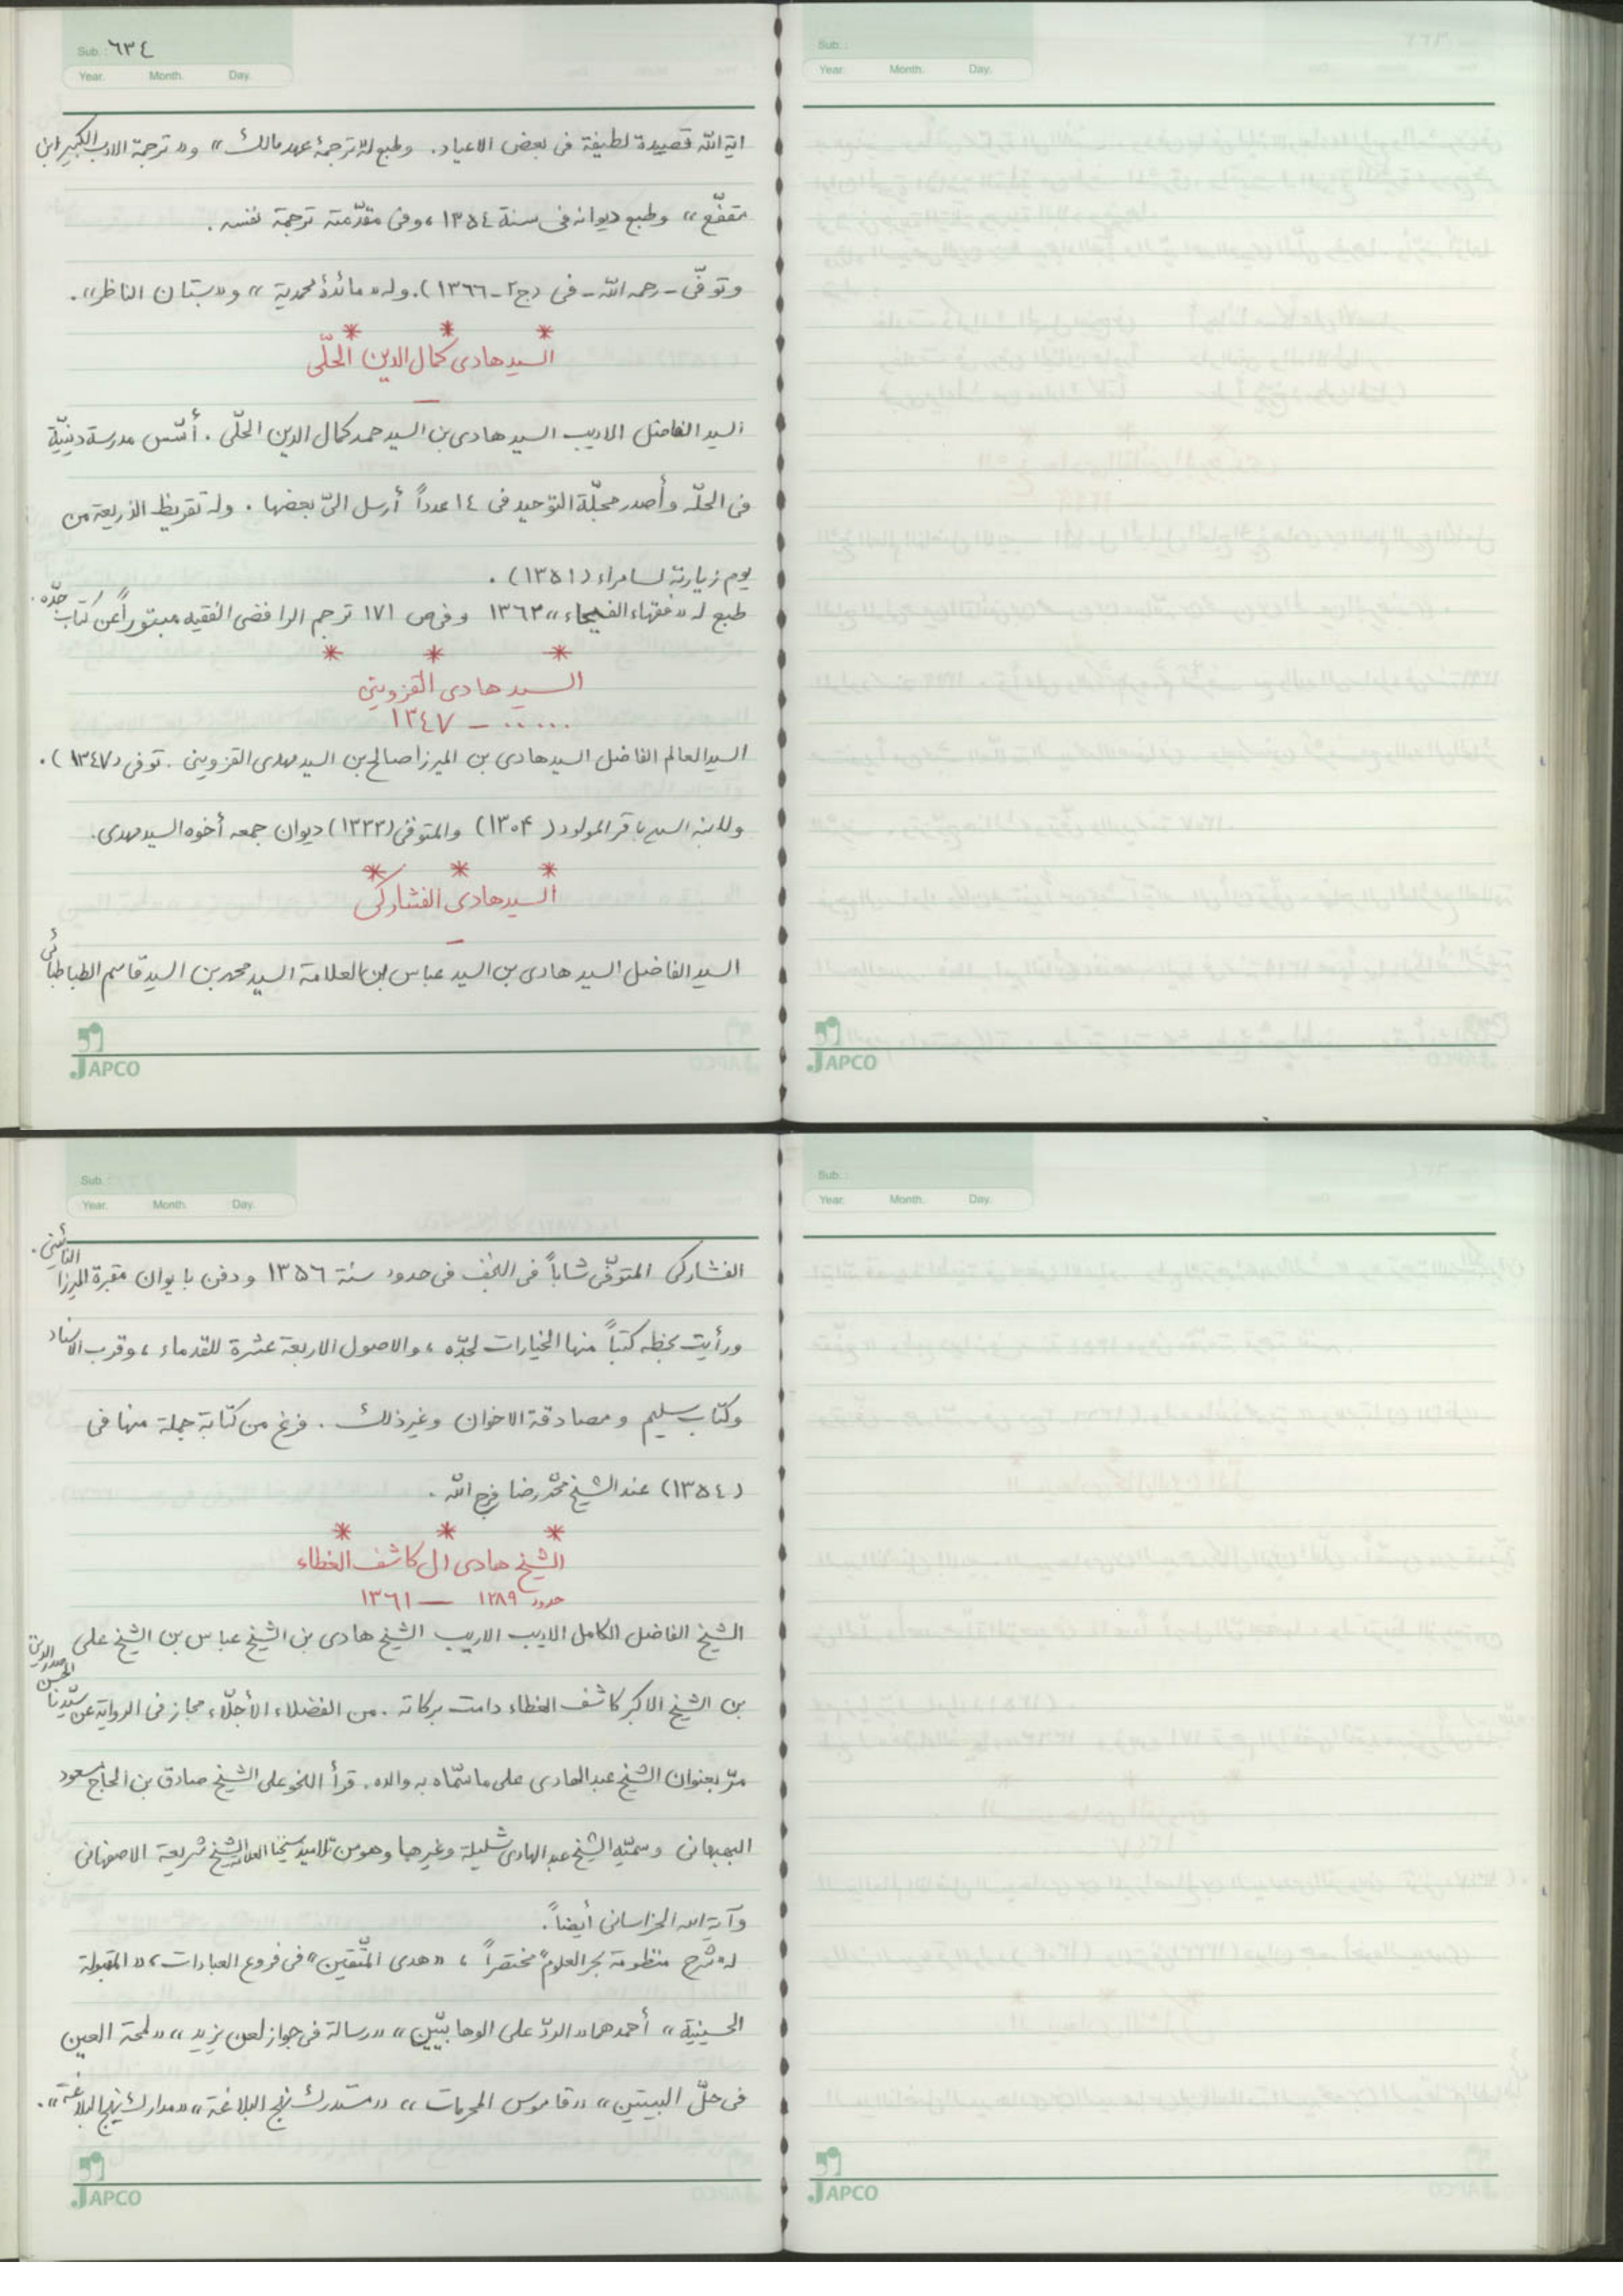 Sub.: ٦٣٤
Year. Month. Day.
اية الله قصيدة لطيفة فى بعض الاعياد. وطبع له «ترجمة عهد مالك» و«ترجمة الادب الكبير ابن
مقفّع» وطبع ديوانه فى سنة ١٣٥٤، وفى مقدّمته ترجمة نفسه.
وتوفّى - رحمه الله - فى (ج٢-١٣٦٦). وله «مائدۀ محمدية» و«بستان الناظر».
* * *
السيد هادى كمال الدين الحلّى
—
السيد الفاضل الاديب السيد هادى بن السيد حمد كمال الدين الحلّى. أسّس مدرسة دينيّة
فى الحلّه وأصدر مجلّة التوحيد فى ١٤ عدداً أرسل الىّ بعضها. وله تقريظ الذريعة من
يوم زيارته لسامراء (١٣٥١).
طبع له «فقهاء الفيحاء» ١٣٦٣ وفى ص ١٧١ ترجم الرافضى الفقيه مبتوراً عن كتاب جدّه.
* * *
السيد هادى القزوينى
..... – ١٣٤٧
السيد العالم الفاضل السيد هادى بن الميرزا صالح بن السيد مهدى القزوينى. توفى (١٣٤٧).
ولابنه السيد باقر المولود (١٣٠۴) والمتوفى (١٣٣٣) ديوان جمعه أخوه السيد مهدى.
* * *
السيد هادى الفشاركى
—
السيد الفاضل السيد هادى بن السيد عباس بن العلامة السيد محمد بن السيد قاسم الطباطبائى
JAPCO
Sub.:
Year. Month. Day.
JAPCO
Sub.:
Year. Month. Day.
الفشاركى المتوفّى شاباً فى النجف فى حدود سنة ١٣٥٦ ودفن بايوان مقبرة الميرزا النائينى.
ورأيت بخطه كتباً منها الخيارات لجدّه، والاصول الاربعة عشرة للقدماء، وقرب الاسناد
وكتاب سليم ومصادقة الاخوان وغيرذلك. فرغ من كتابة جملة منها فى
(١٣٥٤) عند الشيخ محمّد رضا فرج الله.
* * *
الشيخ هادى ال كاشف الغطاء
حدود ١٢٨٩ — ١٣٦١
الشيخ الفاضل الكامل الاديب الاريب الشيخ هادى بن الشيخ عباس بن الشيخ على
بن الشيخ الاكبر كاشف الغطاء دامت بركاته. من الفضلاء الأجلّاء مجاز فى الرواية عن سيّدنا الحسن صدر الدين
مرّ بعنوان الشيخ عبدالهادى على ما سمّاه به والده. قرأ النحو على الشيخ صادق بن الحاج مسعود
البهبهانى وسميّه الشيخ عبدالهادى شليلة وغيرهما وهو من تلاميذ شيخنا العلامة الشيخ شريعة الاصفهانى
وآية الله الخراسانى أيضاً.
له شرح منظومة بحر العلوم مختصراً، «هدى المتّقين» فى فروع العبادات، «المقبولة
الحسينية» أحمدهما «الردّ على الوهابيّين» «رسالة فى جواز لعن يزيد» «لمحة العين
فى حلّ البيتين» «قاموس المحرمات» «مستدرك نهج البلاغة» «مدارك نهج البلاغة».
JAPCO
Sub.:
Year. Month. Day.
JAPCO